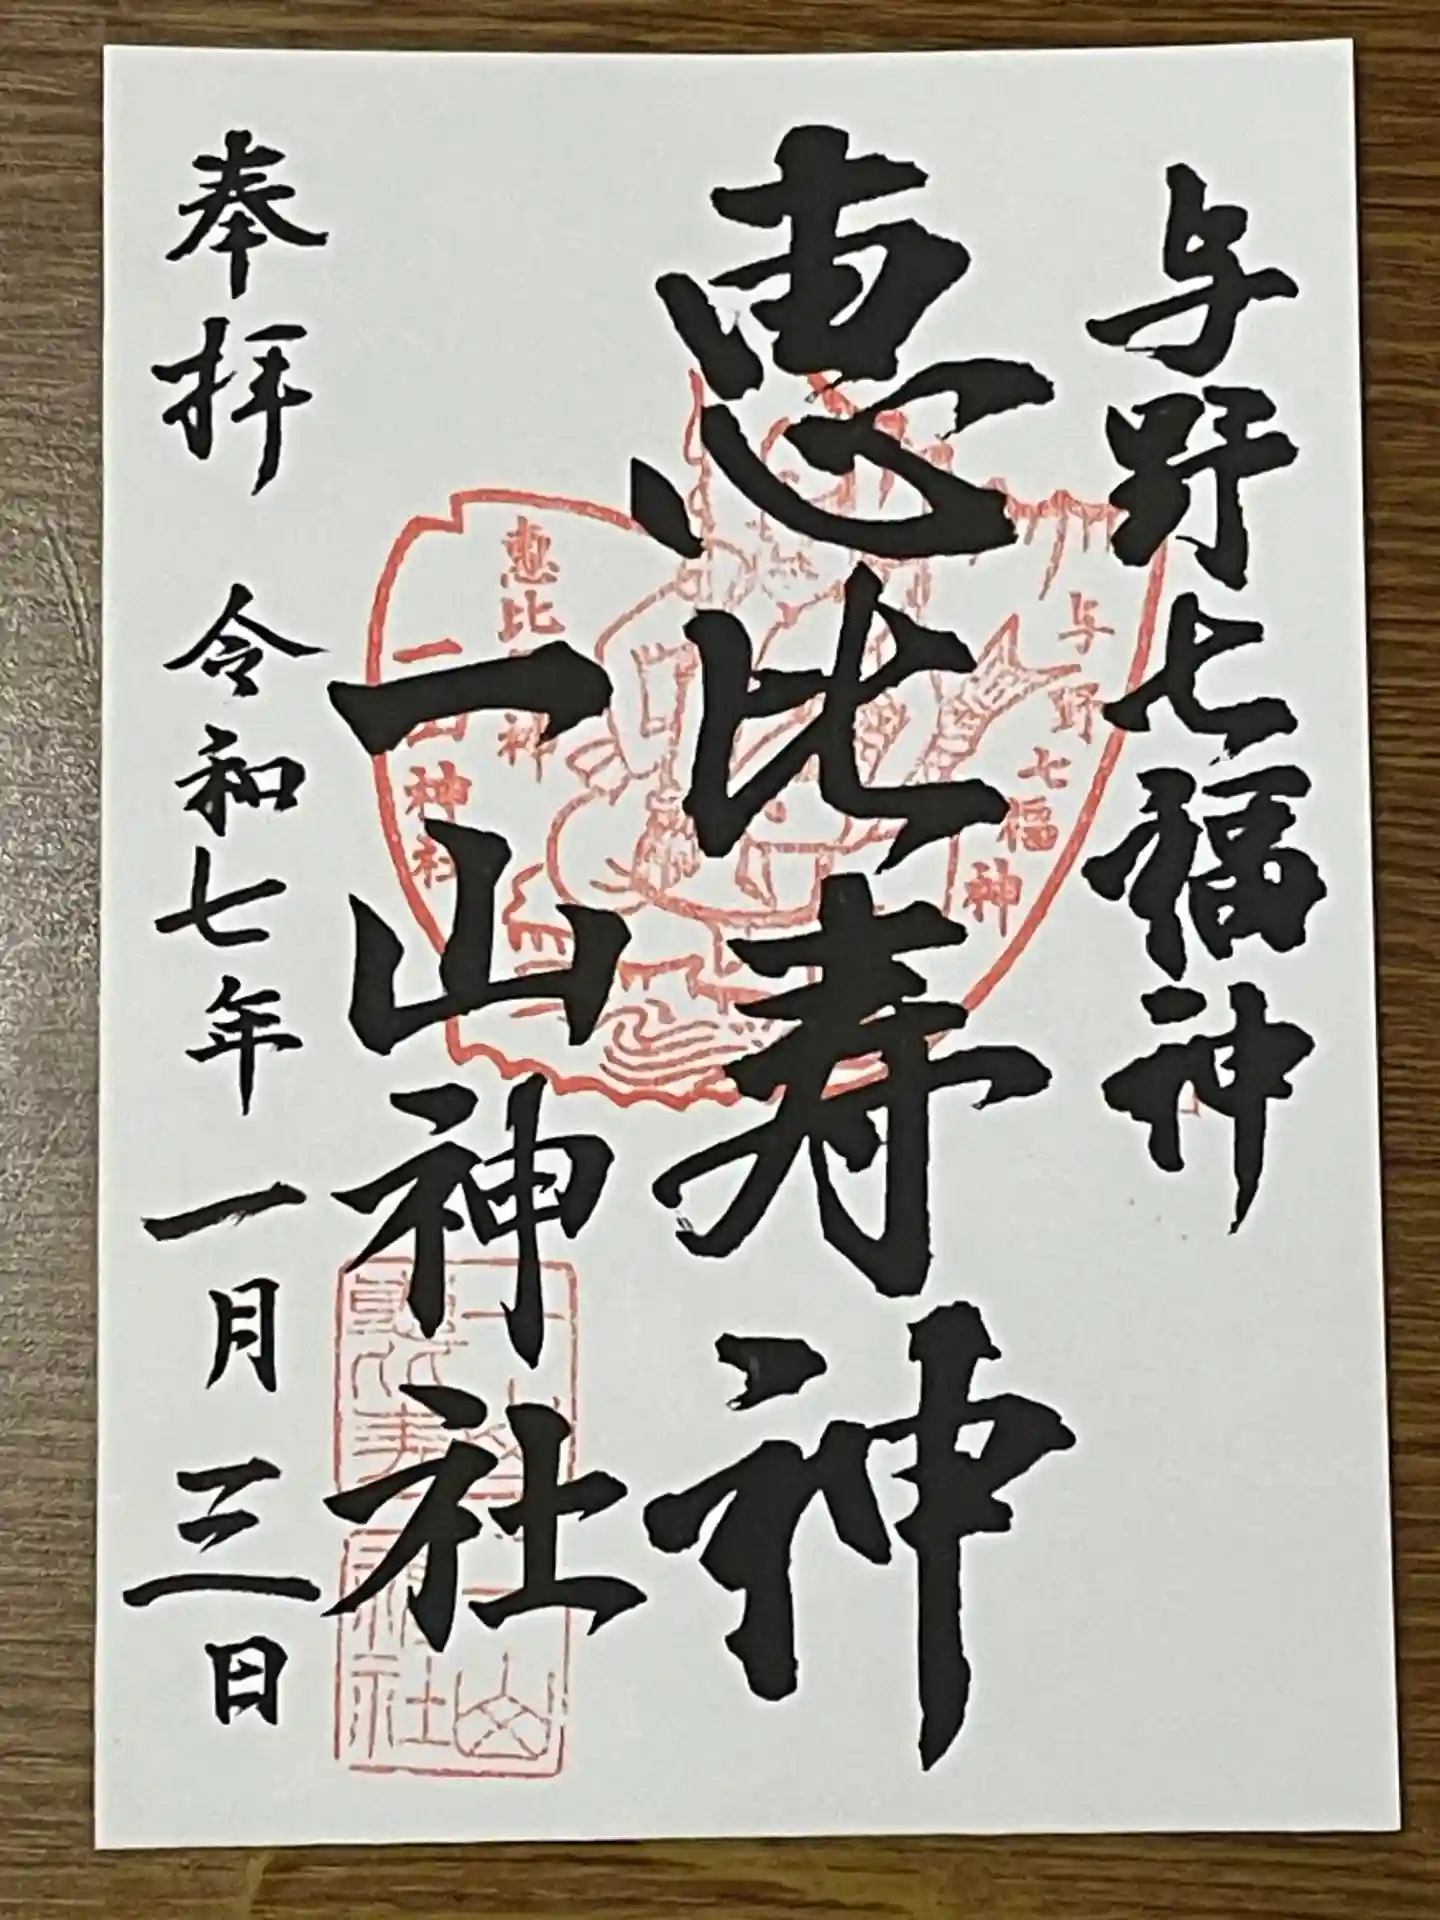 与野七福神
恵比寿神
一山神社
奉拝 令和七年一月三日
与野七福神
恵比 神
一 山神社